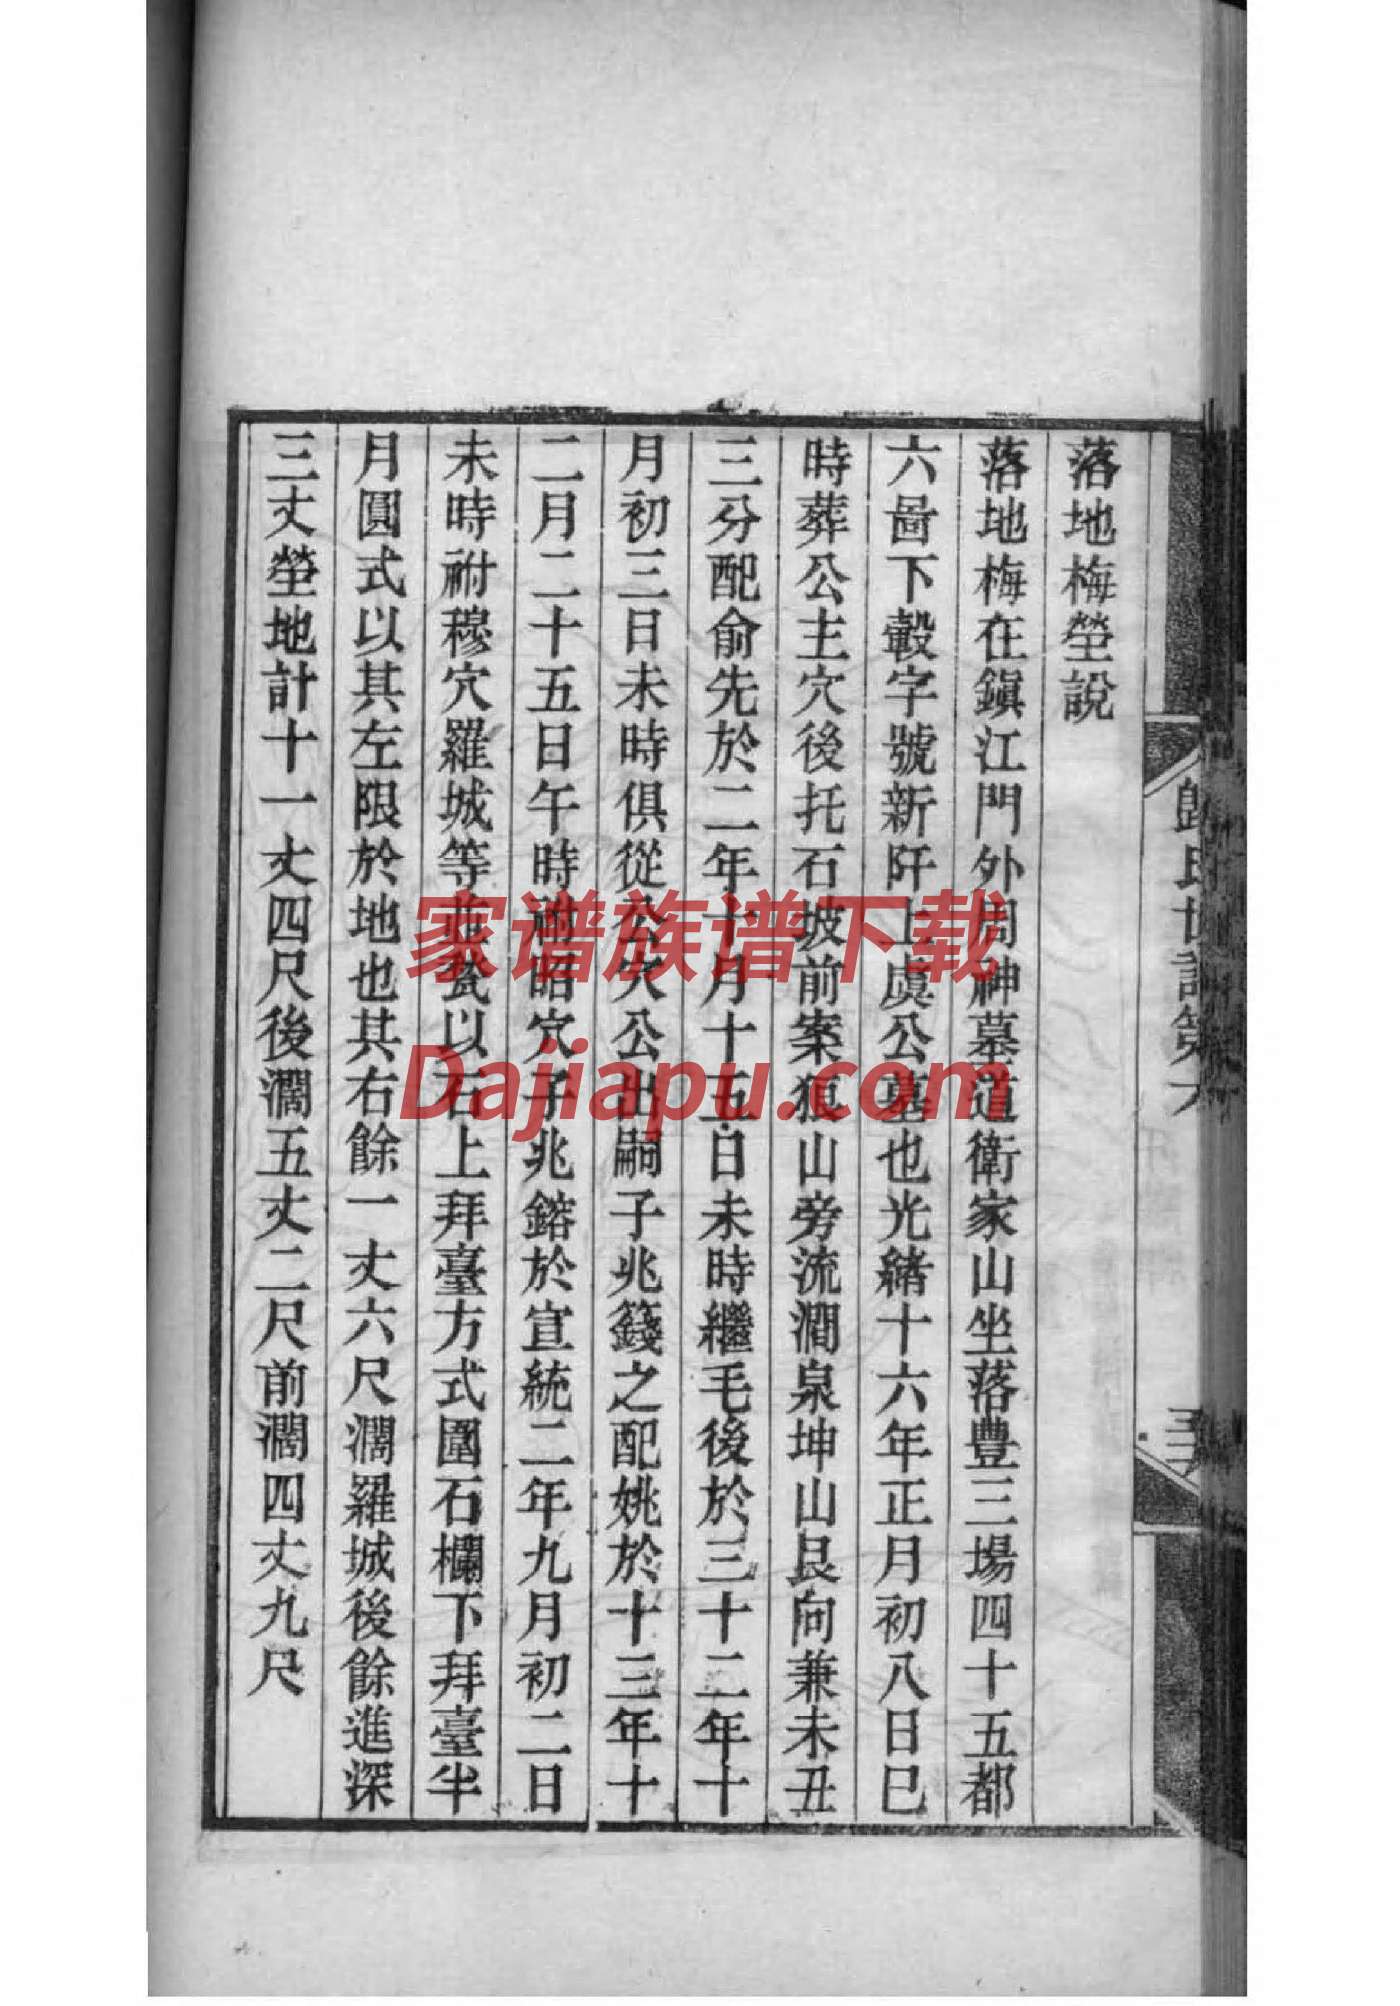 落地梅塋說
落地梅在鎭江門外周神墓道衛家山坐落豐三場四十五都
六啚下轂字號新阡上虞公墓也光緒十六年正月初八日巳
時葬公主穴後托石坡前案狼山旁流澗泉坤山艮向兼未丑
三分配俞先於二年十月十五日未時繼毛後於三十二年十
月初三日未時俱從公穴公出嗣子兆籛之配姚於十三年十
二月二十五日午時祔昭穴子兆鎔於宣統二年九月初二日
未時祔穆穴羅城等並甃以石上拜臺方式圍石欄下拜臺半
月圓式以其左限於地也其右餘一丈六尺濶羅城後餘進深
三丈塋地計十一丈四尺後濶五丈二尺前濶四丈九尺
氏世譜第六
家谱族谱下载
Dajiapu.com